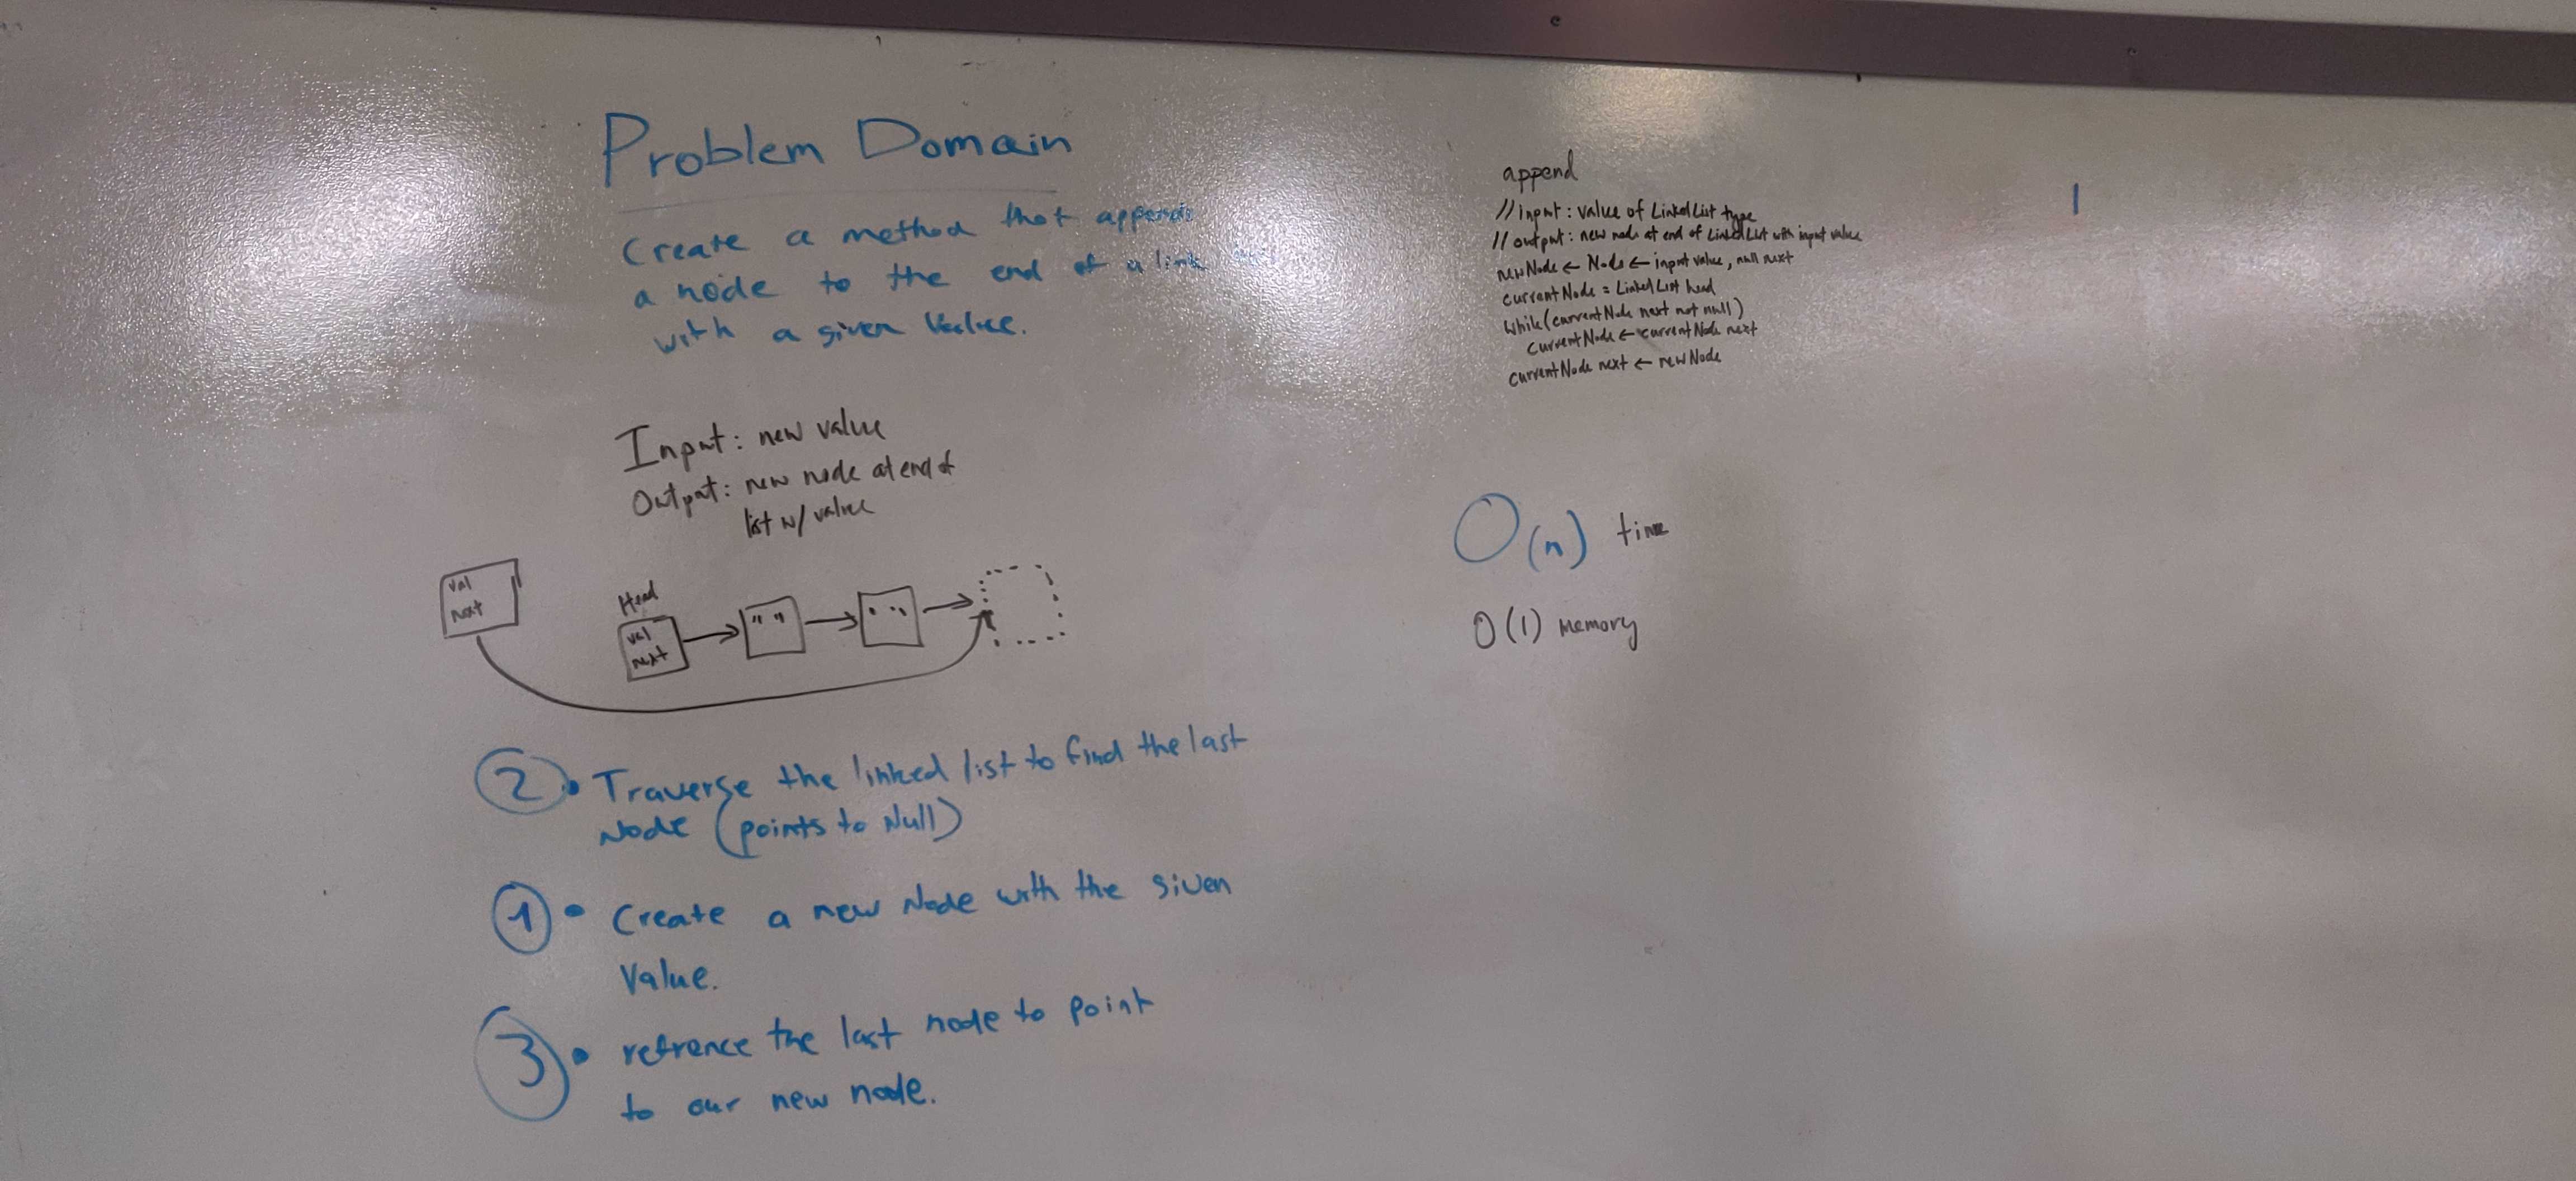 Problem Domain
Create a method that appends
a node to the end of a link
with a given Value.
Input: new value
Output: new node at end of
list w/ value
val
next
Head
val
next
" "
" "
2 • Traverse the linked list to find the last
Node (points to Null)
1 • Create a new Node with the given
Value.
3 • refrence the last node to point
to our new node.
append
// input: value of LinkedList type
// output: new node at end of LinkedList with input value
newNode ← Node ← input value, null next
currentNode = LinkedList head
while(currentNode next not null)
currentNode ← currentNode next
currentNode next ← newNode
O(n) time
O(1) memory